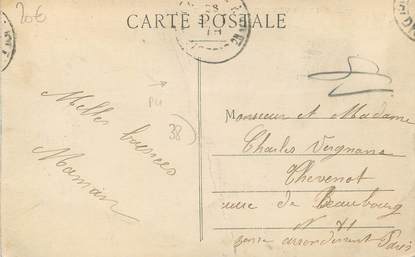 20€
CARTE POSTALE
PH
38
Melles baisers
Maman
Monsieur et Madame
Charles Vergnans
Thevenot
rue de Beaubourg
N 71
arrondissement Paris